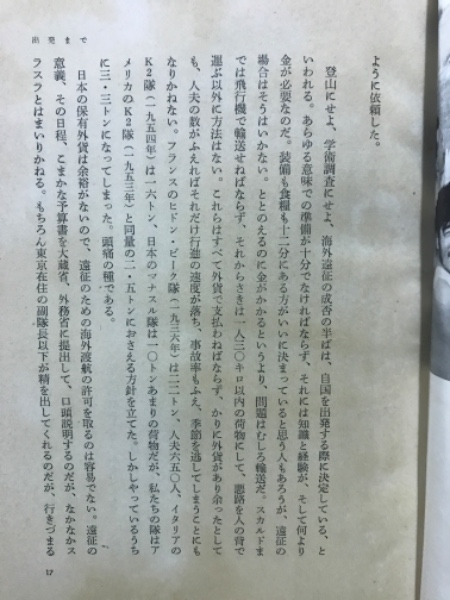 出発まで
ように依頼した。
登山にせよ、学術調査にせよ、海外遠征の成否の半ばは、自国を出発する際に決定している、と
いわれる。あらゆる意味での準備が十分でなければならず、それには知識と経験が、そして何より
金が必要なのだ。装備も食糧も十二分にある方がいいに決まっていると思う人もあろうが、遠征の
場合はそうはいかない。ととのえるのに金がかかるというより、問題はむしろ輸送だ。スカルドま
では飛行機で輸送せねばならず、それからさきは一人三〇キロ以内の荷物にして、悪路を人の背で
運ぶ以外に方法はない。これらはすべて外貨で支払わねばならず、かりに外貨があり余ったとして
も、人夫の数がふえればそれだけ行進の速度が落ち、事故率もふえ、季節を逃してしまうことにも
なりかねない。フランスのヒドン・ピーク隊（一九三六年）は二二トン、人夫六五〇人、イタリアの
K2隊（一九五四年）は一六トン、日本のマナスル隊は一〇トンあまりの荷物だが、私たちの隊はア
メリカのK2隊（一九五三年）と同量の二・五トンにおさえる方針を立てた。しかしやっているうち
に三・三トンになってしまった。頭痛の種である。
日本の保有外貨は余裕がないので、遠征のための海外渡航の許可を取るのは容易でない。遠征の
意義、その日程、こまかな予算書を大蔵省、外務省に提出して、口頭説明するのだが、なかなかス
ラスラとはまいりかねる。もちろん東京在住の副隊長以下が精を出してくれるのだが、行きづまる
17